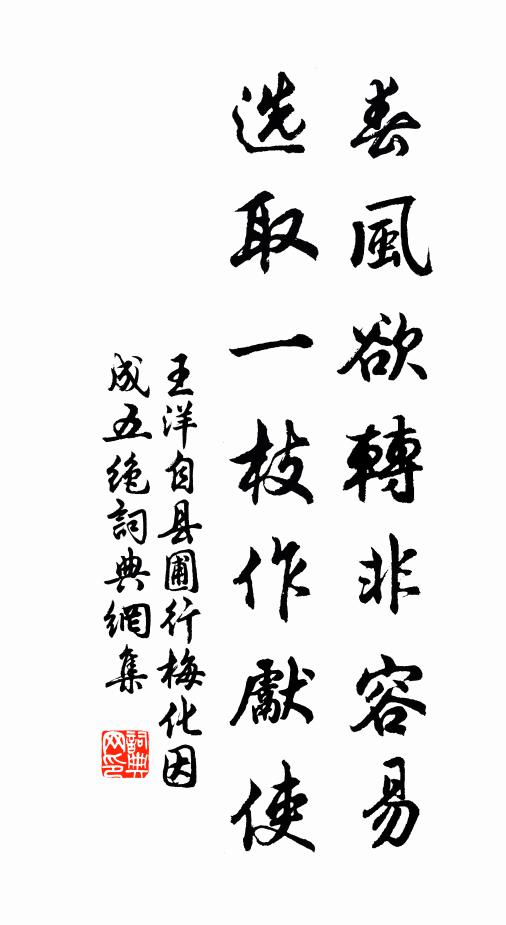 春風欲轉非容易
选取一枝作獻使
王洋自县圃行梅化因
成五绝詞典網集
詞典网印